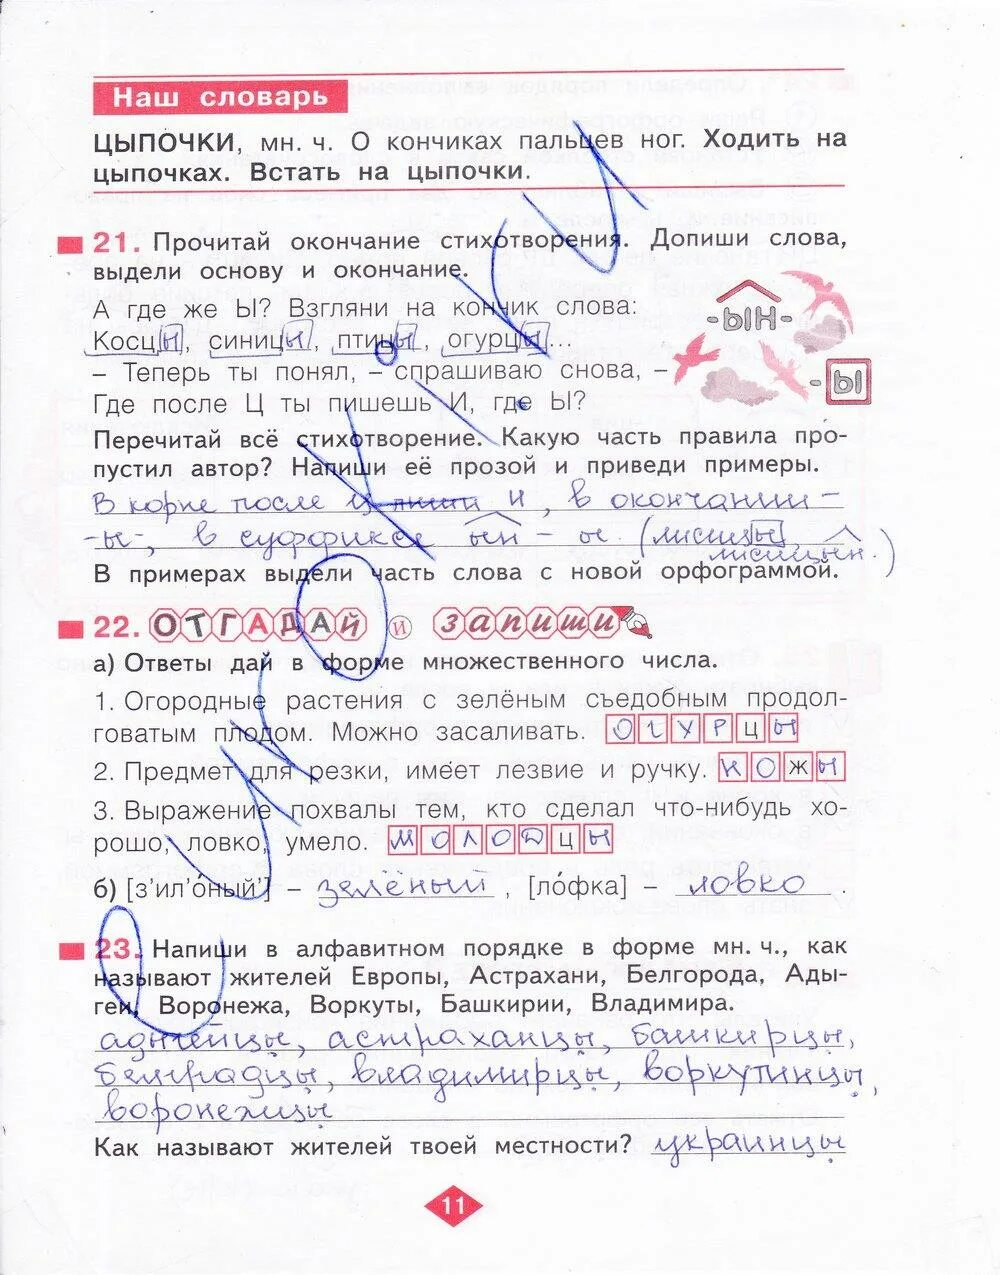 Наш словарь
ЦЫПОЧКИ, мн. ч. О кончиках пальцев ног. Ходить на
цыпочках. Встать на цыпочки.
21. Прочитай окончание стихотворения. Допиши слова,
выдели основу и окончание.
А где же Ы? Взгляни на кончик слова:
Косцы, синицы, птицы, огурцы...
– Теперь ты понял, – спрашиваю снова, –
Где после Ц ты пишешь И, где Ы?
-ЫН-
-Ы
Перечитай всё стихотворение. Какую часть правила про-
пустил автор? Напиши её прозой и приведи примеры.
В корне после ц пиши и, в окончании -
-ы-, в суффиксе ын - ы (лисицы,
лисицын.)
В примерах выдели часть слова с новой орфограммой.
22. ОТГАДАЙ и запиши
а) Ответы дай в форме множественного числа.
1. Огородные растения с зелёным съедобным продол-
говатым плодом. Можно засаливать. ОГУРцЫ
2. Предмет для резки, имеет лезвие и ручку. НОжЫ
3. Выражение похвалы тем, кто сделал что-нибудь хо-
рошо, ловко, умело. МОЛОДцЫ
б) [з'ил'о́ный'] – зелёный, [ло́фка] – ловко.
23. Напиши в алфавитном порядке в форме мн. ч., как
называют жителей Европы, Астрахани, Белгорода, Ады-
геи, Воронежа, Воркуты, Башкирии, Владимира.
адыгейцы, астраханцы, башкирцы,
белградцы, владимирцы, воркутинцы,
воронежцы
Как называют жителей твоей местности? украинцы
11